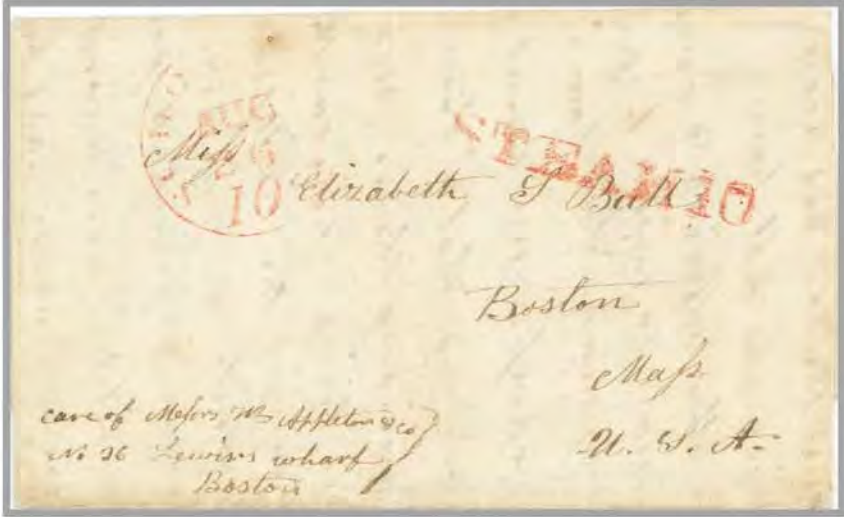 AUG
26
10
STEAM 10
Miſs
Elizabeth S Bull
Boston
Maſs
U. S. A.
care of Meſsrs Wm Appleton & co
No 36 Lewis's wharf
Boston